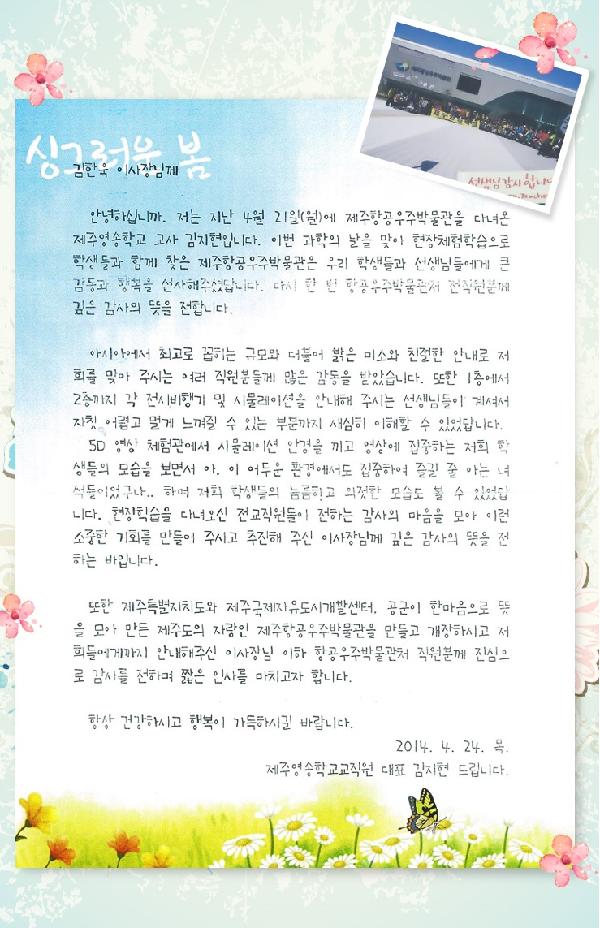 싱그러운 봄
김한욱 이사장님께
선생님 감사합니다
안녕하십니까. 저는 지난 4월 21일(월)에 제주항공우주박물관을 다녀온
제주영송학교 교사 김지현입니다. 이번 과학의 날을 맞아 현장체험학습으로
학생들과 함께 찾은 제주항공우주박물관은 우리 학생들과 선생님들에게 큰
감동과 행복을 선사해주셨답니다. 다시 한 번 항공우주박물관처 전직원분께
깊은 감사의 뜻을 전합니다.
아시아에서 최고로 꼽히는 규모와 더불어 밝은 미소와 친절한 안내로 저
희를 맞아 주시는 여러 직원분들께 많은 감동을 받았습니다. 또한 1층에서
2층까지 각 전시비행기 및 시뮬레이션을 안내해 주시는 선생님들이 계셔서
자칫 어렵고 멀게 느껴질 수 있는 부분까지 세심히 이해할 수 있었답니다.
5D 영상 체험관에서 시뮬레이션 안경을 끼고 영상에 집중하는 저희 학
생들의 모습을 보면서 아, 이 어두운 환경에서도 집중하여 즐길 줄 아는 녀
석들이었구나.. 하며 저희 학생들의 늠름하고 의젓한 모습도 볼 수 있었답
니다. 현장학습을 다녀오신 전교직원들이 전하는 감사의 마음을 모아 이런
소중한 기회를 만들어 주시고 추진해 주신 이사장님께 깊은 감사의 뜻을 전
하는 바입니다.
또한 제주특별자치도와 제주국제자유도시개발센터, 공군이 한마음으로 뜻
을 모아 만든 제주도의 자랑인 제주항공우주박물관을 만들고 개장하시고 저
희들에게까지 안내해주신 이사장님 이하 항공우주박물관처 직원분께 진심으
로 감사를 전하며 짧은 인사를 마치고자 합니다.
항상 건강하시고 행복이 가득하시길 바랍니다.
2014. 4. 24. 목.
제주영송학교교직원 대표 김지현 드립니다.